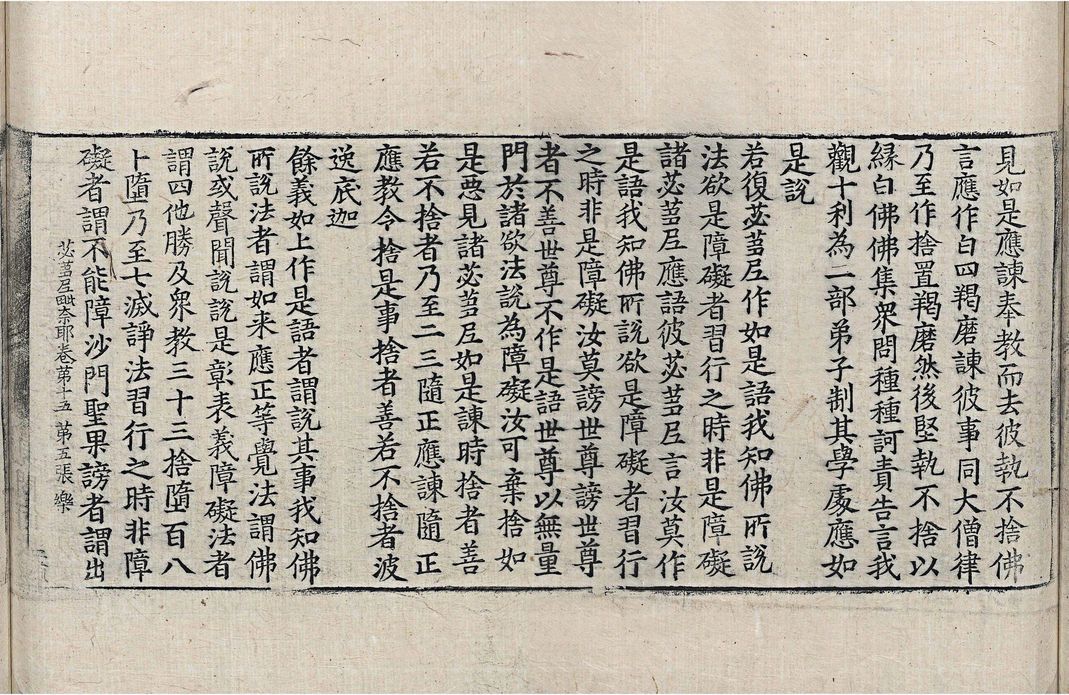 見如是應諫奉教而去彼執不捨佛
言應作白四羯磨諫彼事同大僧律
乃至作捨置羯磨然後堅執不捨以
緣白佛佛集衆問種種訶責告言我
觀十利為二部弟子制其學處應如
是說
若復苾芻尼作如是語我知佛所說
法欲是障礙者習行之時非是障礙
諸苾芻尼應語彼苾芻尼言汝莫作
是語我知佛所說欲是障礙者習行
之時非是障礙汝莫謗世尊謗世尊
者不善世尊不作是語世尊以無量
門於諸欲法說為障礙汝可棄捨如
是惡見諸苾芻尼如是諫時捨者善
若不捨者乃至二三隨正應諫隨正
應教令捨是事捨者善若不捨者波
逸底迦
餘義如上作是語者謂說其事我知佛
所說法者謂如来應正等覺法謂佛
說或聲聞說說是彰表義障礙法者
謂四他勝及衆教三十三捨墮百八
十墮乃至七滅諍法習行之時非障
苾芻尼毗奈耶卷第十五 第五張 樂
礙者謂不能障沙門聖果謗者謂出